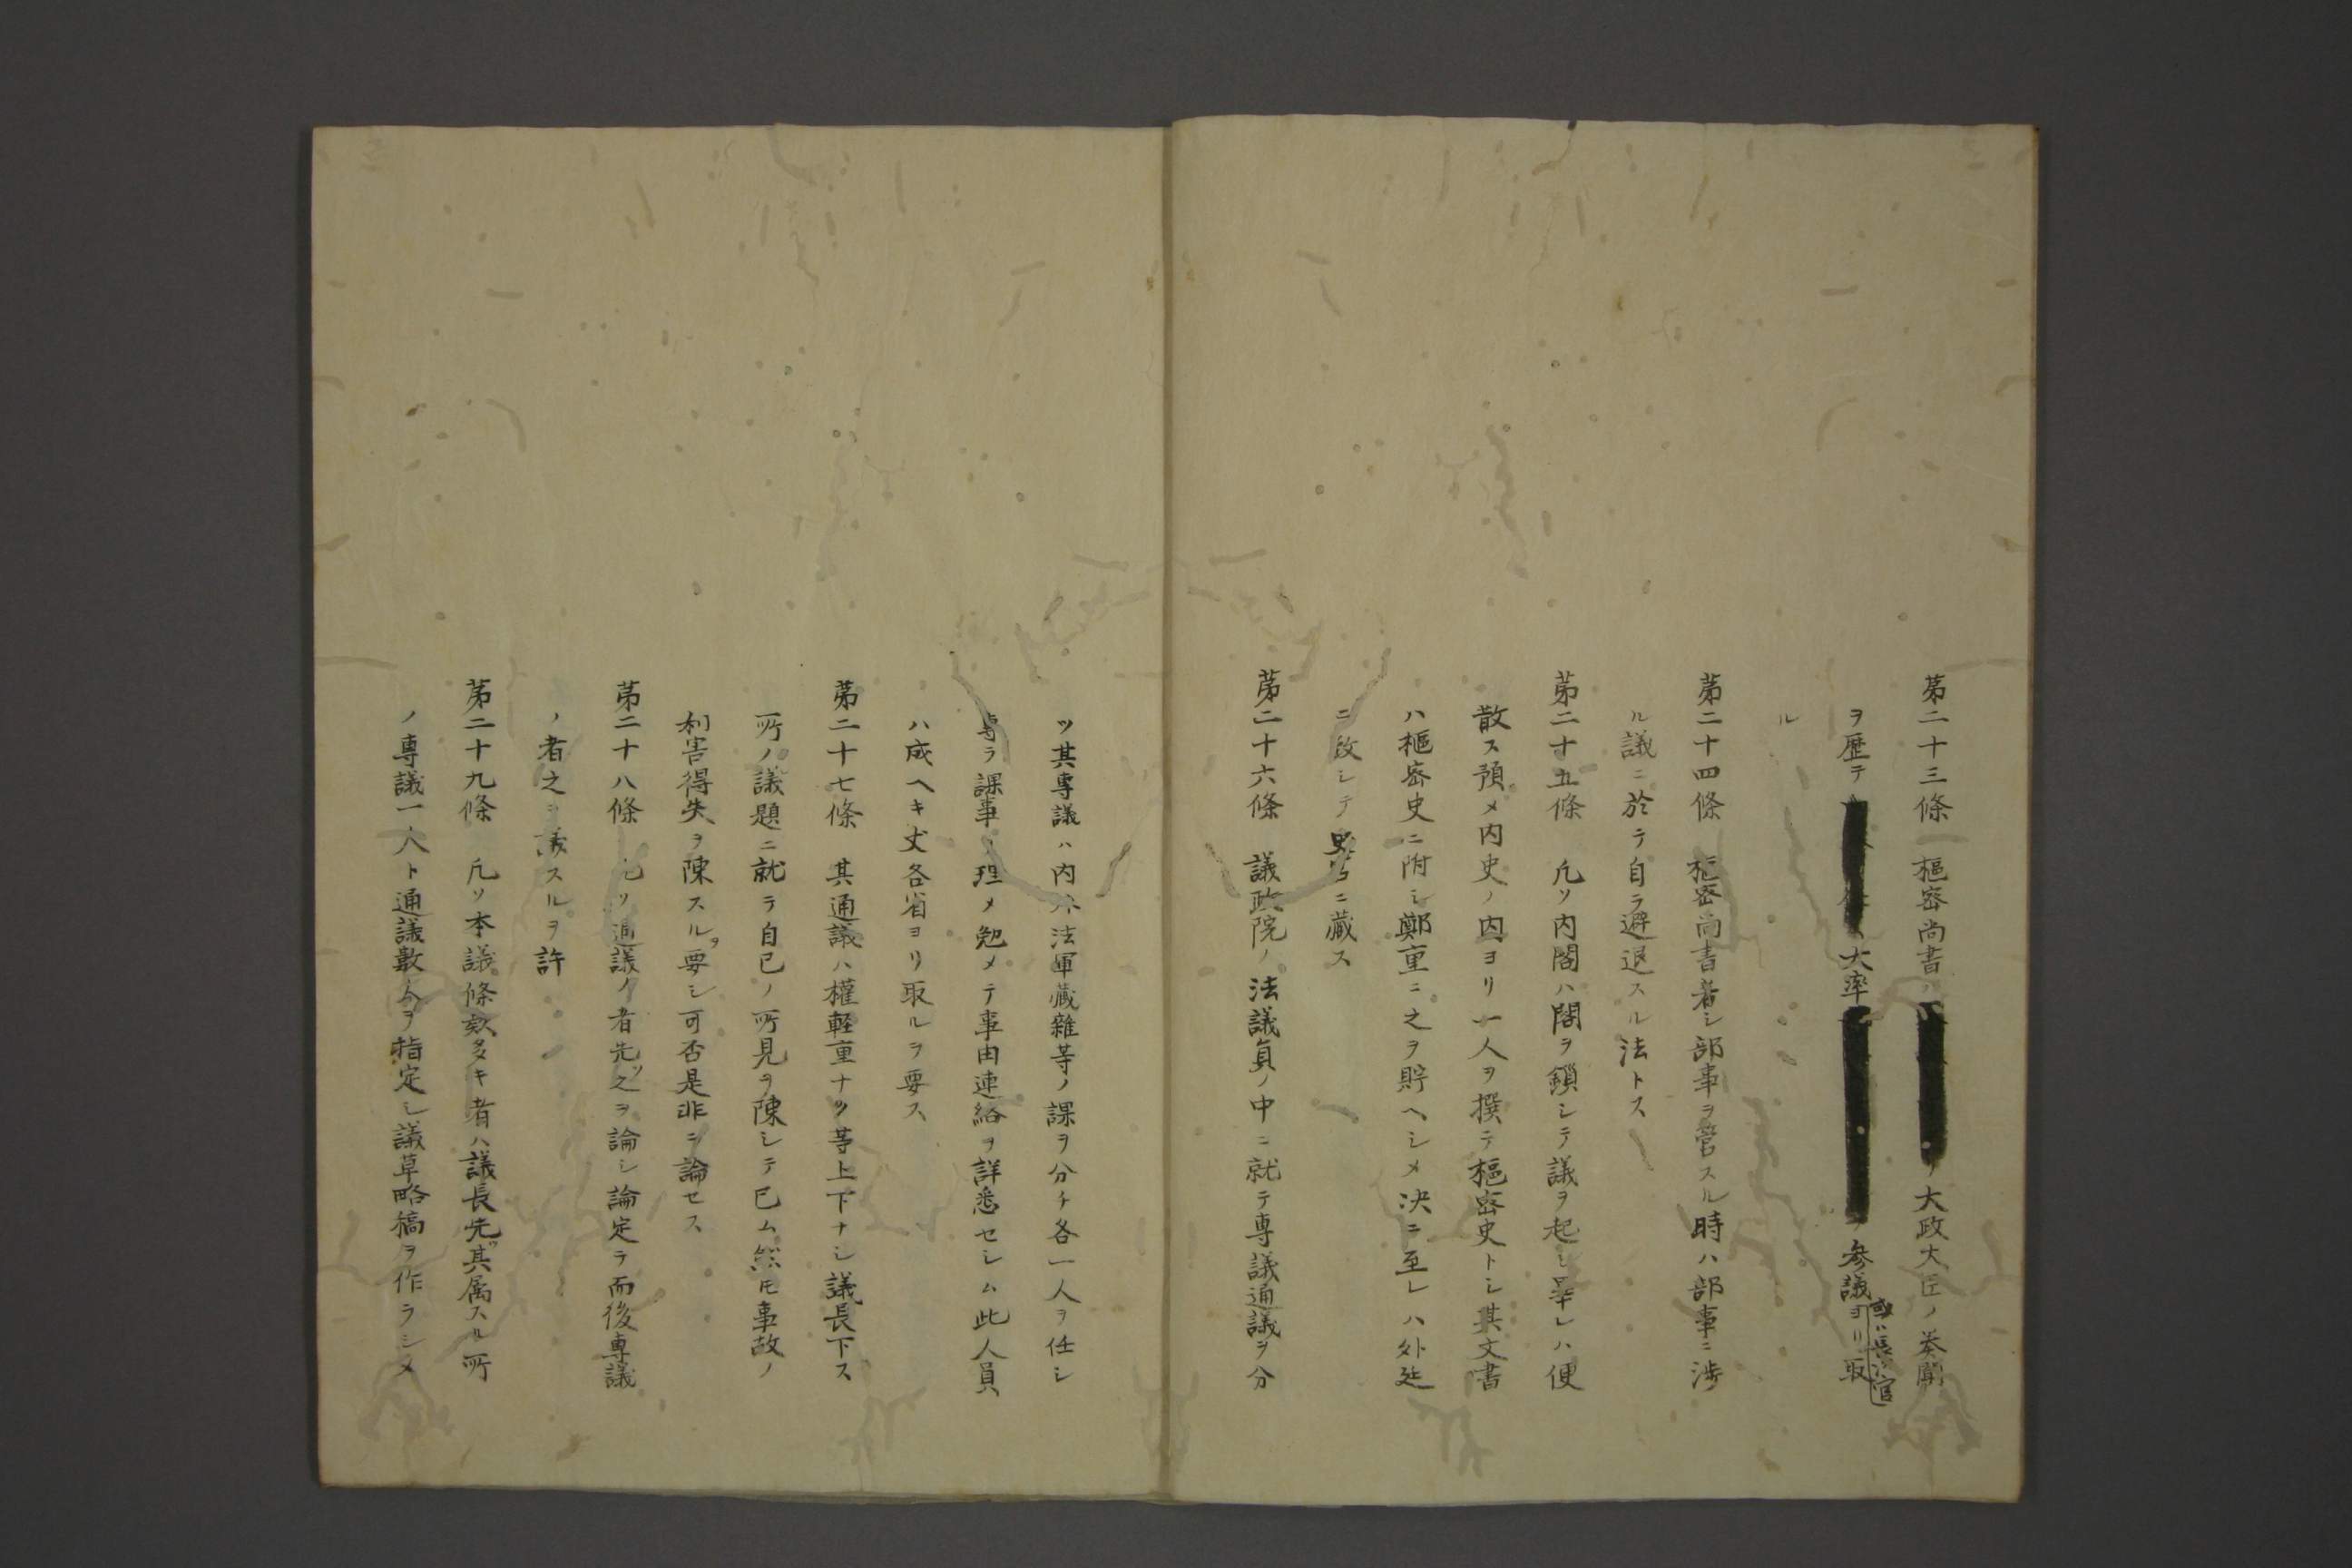 第二十三條　樞密尚書ハノ大政大臣ノ奏聞
ヲ歴テ大率参議ヨリ取
或ハ長次官
ル
第二十四條　樞密尚書若シ部事ヲ管スル時ハ部事ニ渉
ル議ニ於テ自ラ避退スル法トス
第二十五條　凡ソ内閣ハ閣ヲ鎖シテ議ヲ起シ畢レハ便
散ス預メ内史ノ内ヨリ一人ヲ撰テ樞密史トシ其文書
ハ樞密史ニ附シ鄭重ニ之ヲ貯ヘシメ決ニ至レハ外廷
ニ啟シテニ蔵ス
第二十六條　議政院ノ法議員ノ中ニ就テ専議通議ヲ分
ツ其専議ハ内外法軍蔵雜等ノ課ヲ分チ各一人ヲ任シ
専ラ課事ノ理メ勉メテ事由連絡ヲ詳悉セシム此人員
ハ成ヘキ丈各省ヨリ取ルヲ要ス
第二十七條　其通議ハ權軽重ナク等上下ナシ議長下ス
所ノ議題ニ就ラ自已ノ所見ヲ陳シテ已ム然モ事故ノ
利害得失ヲ陳スルヲ要シ可否是非ヲ論セス
第二十八條　凡ソ通議ノ者先ツ之ヲ論シ論定テ而後専議
ノ者之ヲ議スルヲ許
第二十九條　凡ソ本議條款多キ者ハ議長先ツ其属スル所
ノ専議一人ト通議數人ヲ指定シ議草略稿ヲ作ラシメ